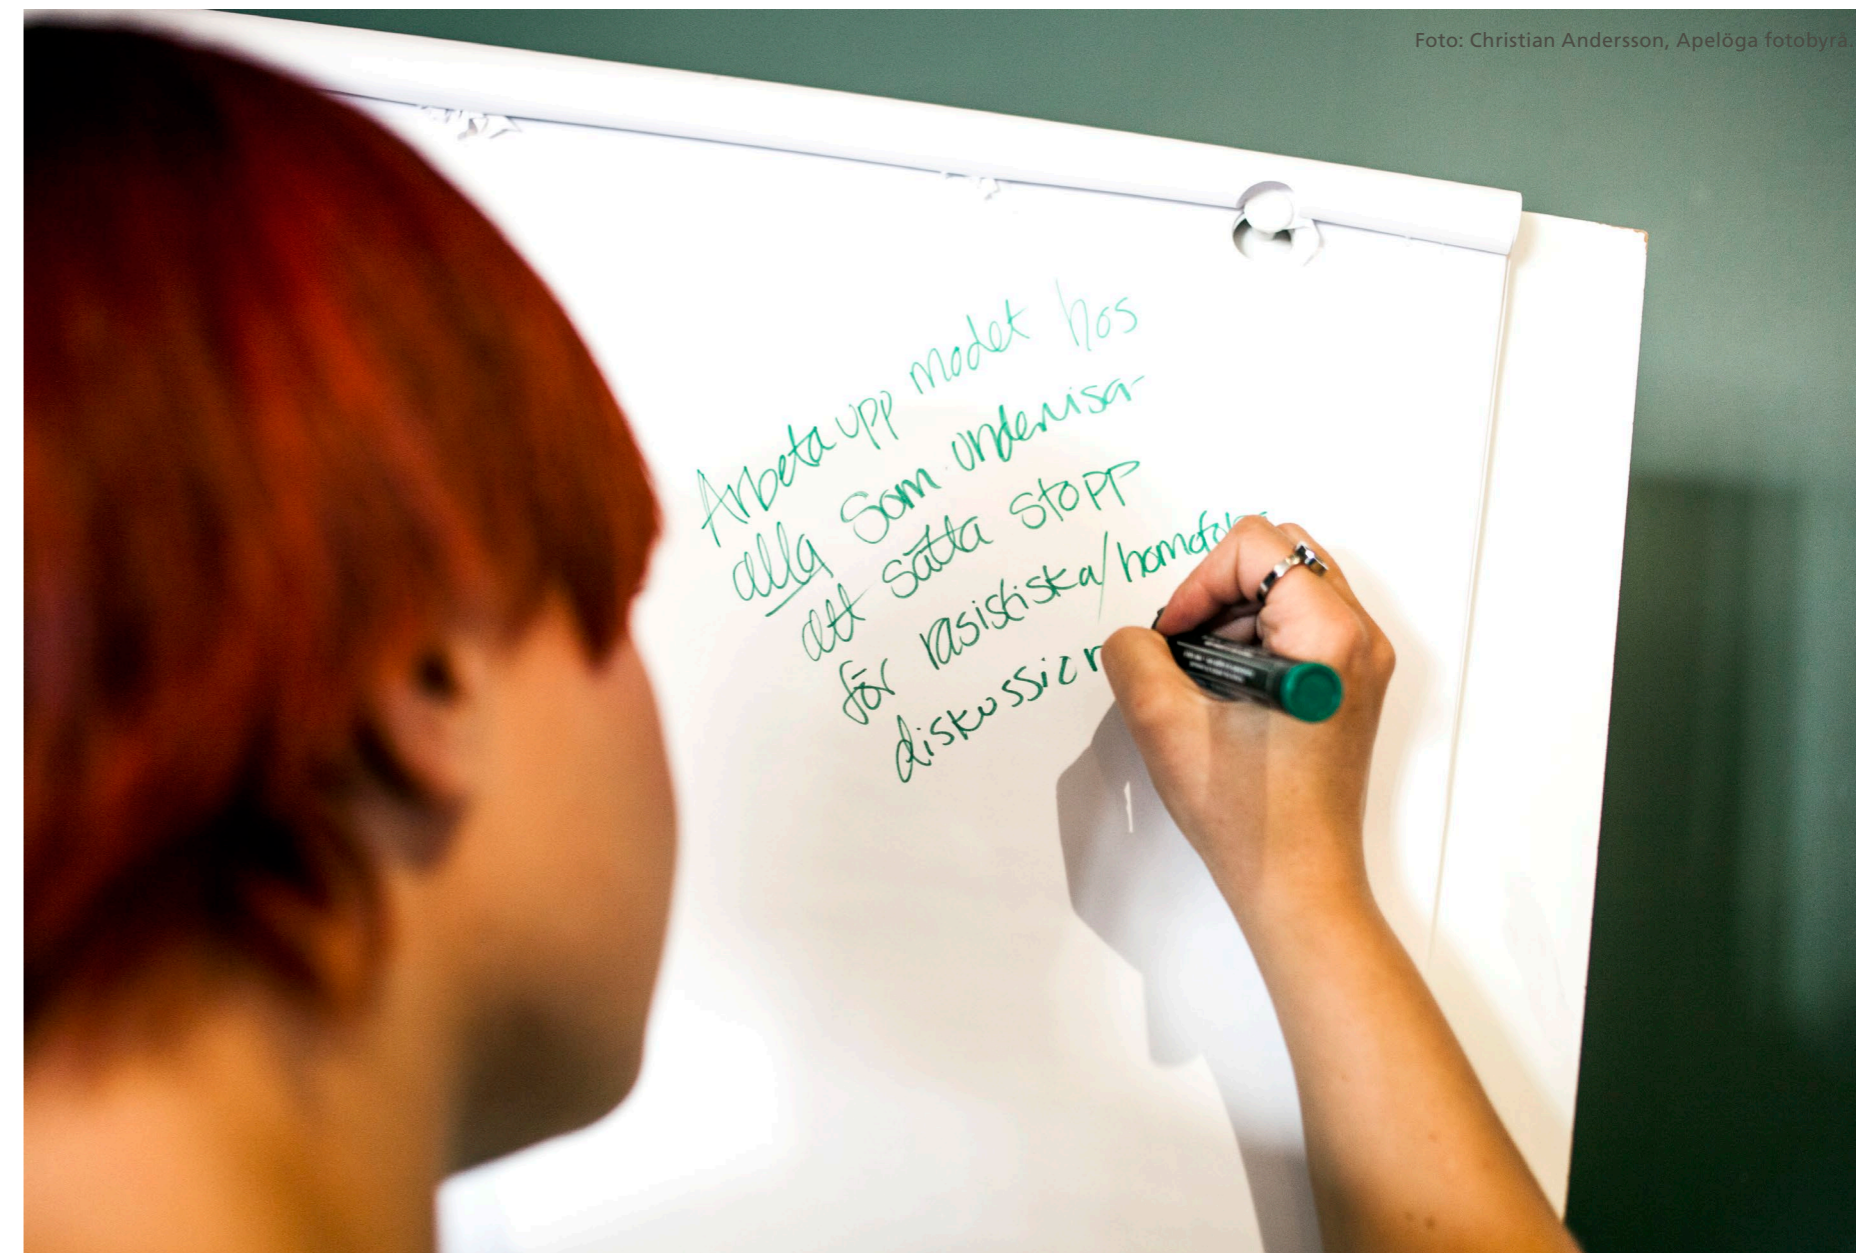 Foto: Christian Andersson, Apelöga fotobyrå.
Arbeta upp modet hos
alla som undervisar
att sätta stopp
för rasistiska/